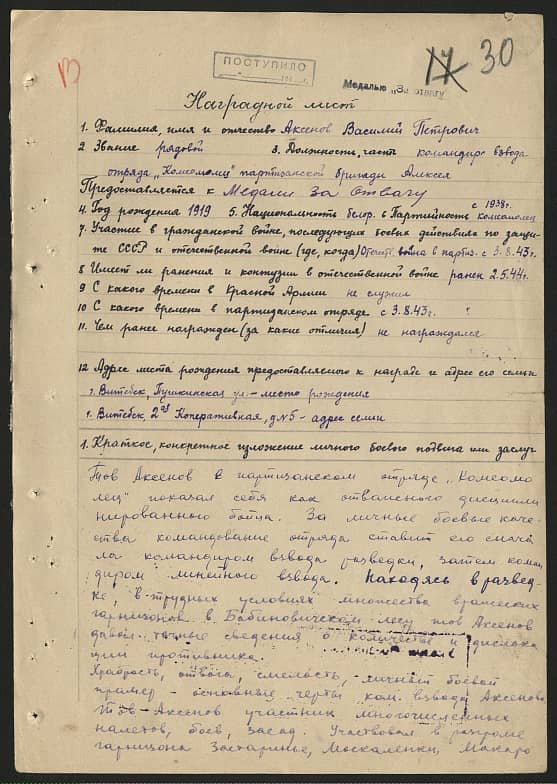 В
ПОСТУПИЛО
17 30
Медалью „За отвагу
Наградной лист
1. Фамилия, имя и отчество Аксенов Василий Петрович
2 Звание рядовой 3. Должность, часть командир взвода
отряда „Комсомолец" партизанской бригады Алексея
Предоставляется к Медали За Отвагу
с 1938г.
4. Год рождения 1919 5. Национальность белор. 6 Партийность комсомолец
7. Участие в гражданской войне, последующих боевых действиях по защи-
те СССР и отечественной войне (где, когда) Отечеств. война в партиз. с 3.8.43г.
8 Имеет ли ранения и контузии в отечественной войне ранен 2.5.44г.
9 С какого времени в Красной Армии не служил
10 С какого времени в партизанском отряде с 3.8.43г.
11. Чем ранее награжден (за какие отличия) не награждался
12 Адрес места рождения предоставляемого к награде и адрес его семьи
г. Витебск, Пушкинская ул. - место рождения
г. Витебск, 2ая Коперативная, д№5 - адрес семьи
1. Краткое, конкретное изложение личного боевого подвига или заслуг
Тов Аксенов в партизанском отряде „Комсомо
лец" показал себя как отважного дисципли
нированного бойца. За личные боевые каче-
ства командование отряда ставит его снача
ла командиром взвода разведки, затем коман
диром линейного взвода. Находясь в развед-
ке, в трудных условиях множества вражеских
гарнизонов в Бабиновическом лесу тов Аксенов
давал точные сведения о количестве и дислока
ции противника.
Храбрость, отвага, смелость, - личный боевой
пример - основные черты ком. взвода Аксенова
Тов - Аксенов участник многочисленных
налетов, боев, засад. Участвовал в разгроме
гарнизона Застаринье, Москаленки, Макаро